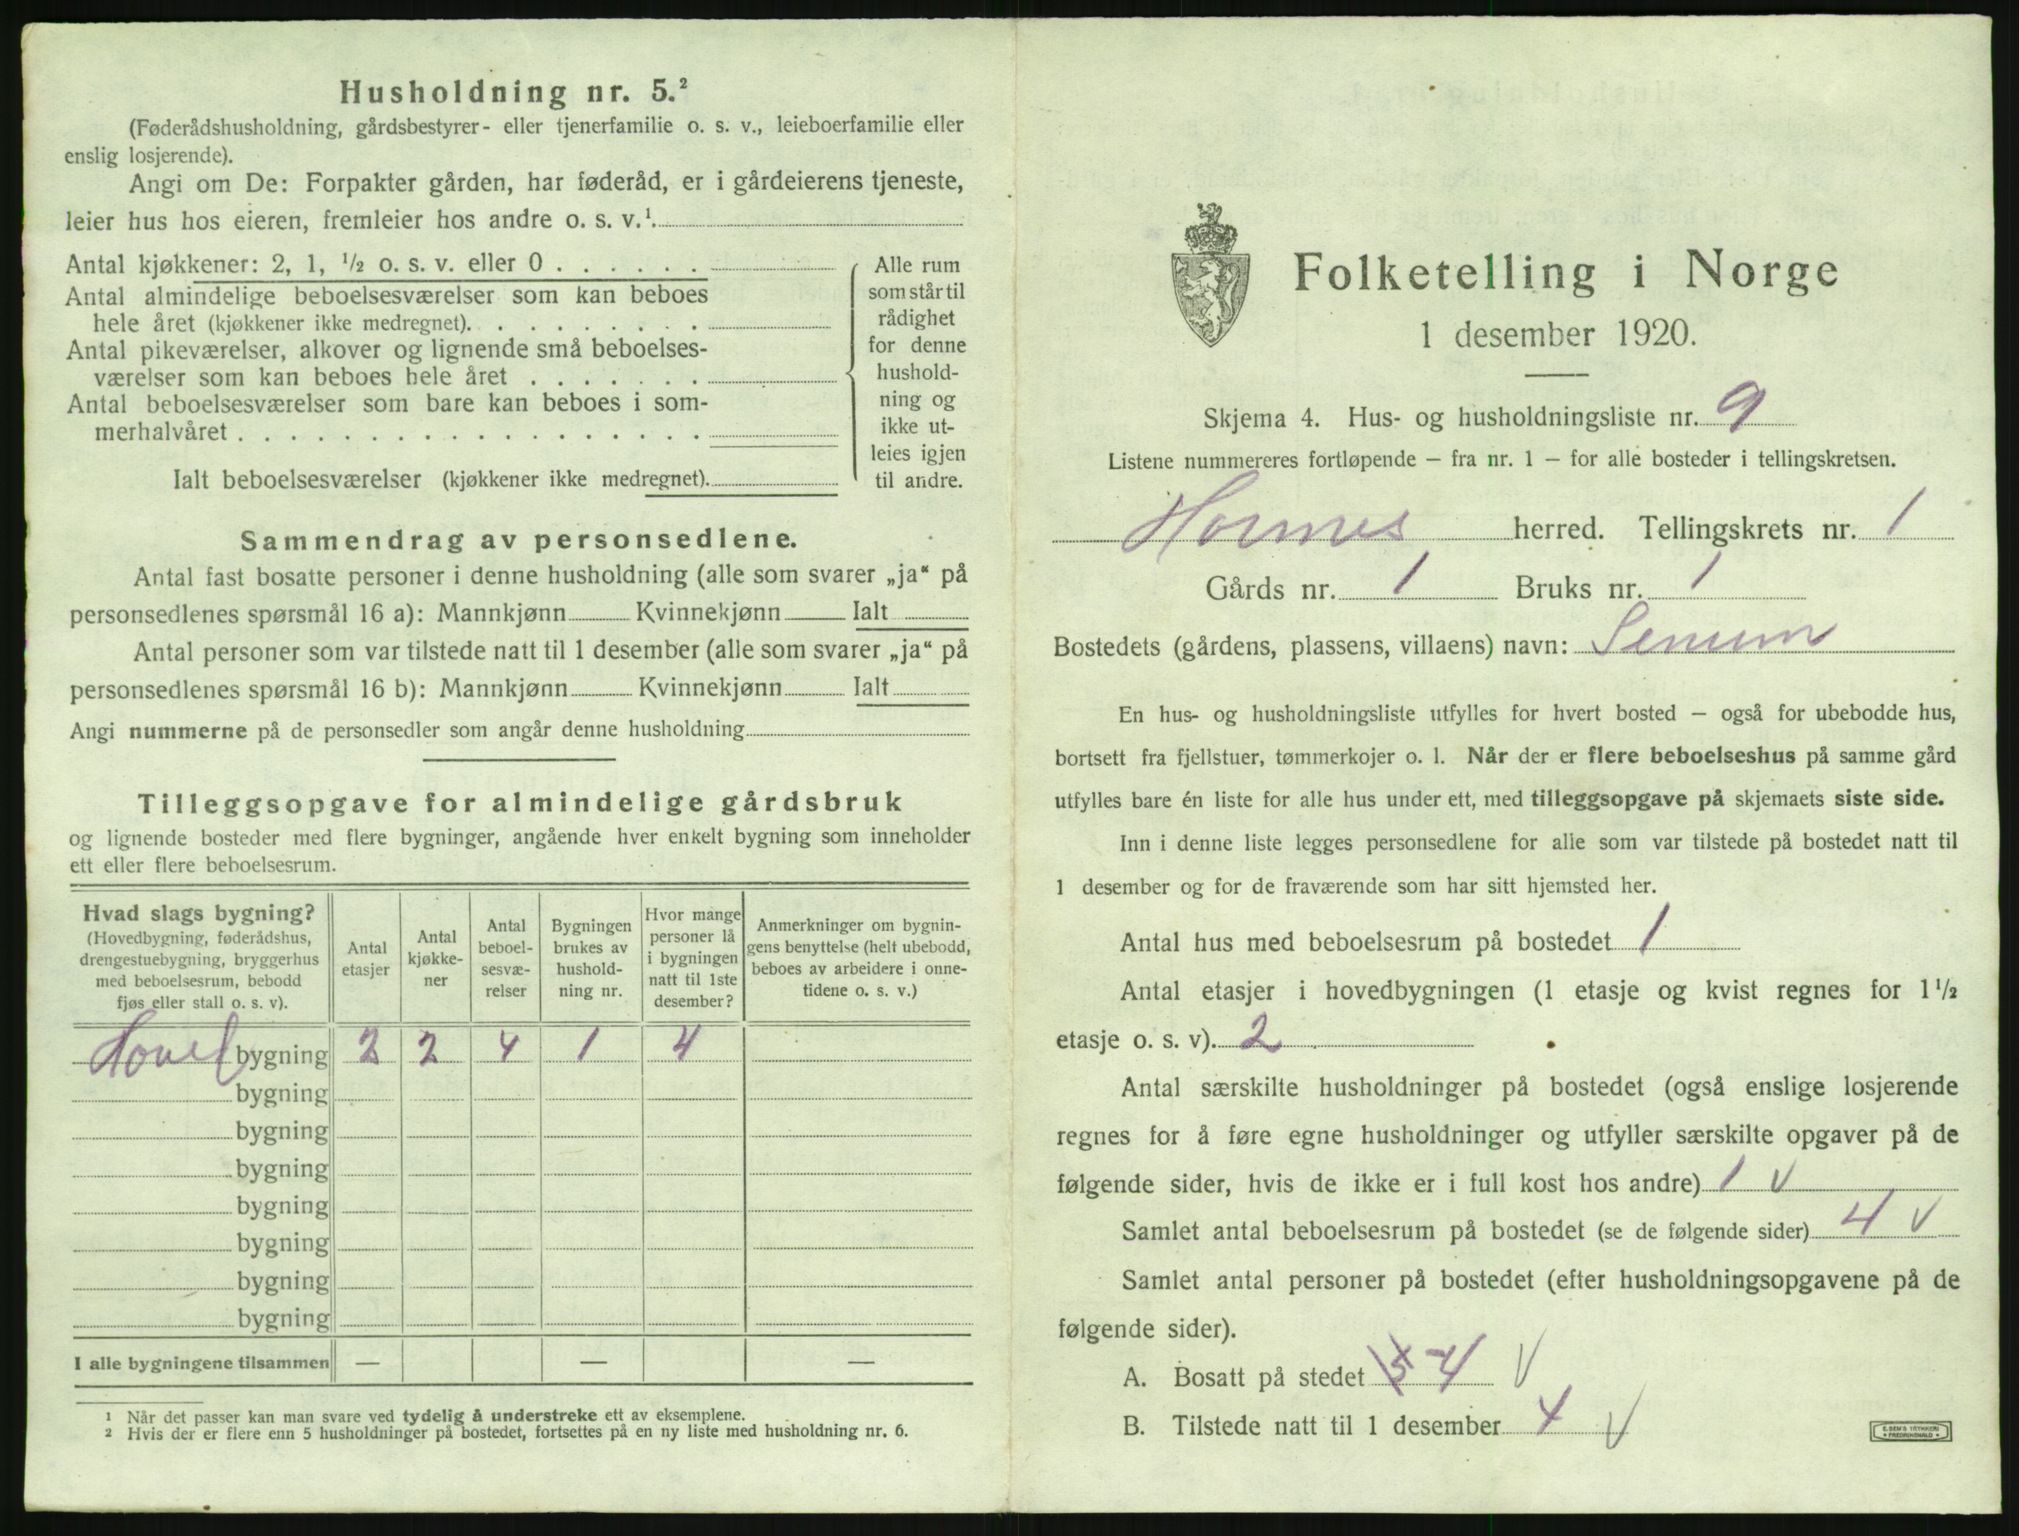 Husholdning nr. 5.²
(Føderådshusholdning, gårdsbestyrer- eller tjenerfamilie o. s. v., leieboerfamilie eller
enslig losjerende).
Angi om De: Forpakter gården, har føderåd, er i gårdeierens tjeneste,
leier hus hos eieren, fremleier hos andre o. s. v.¹
Antal kjøkkener: 2, 1, ½ o. s. v. eller 0 . . . . . .
Antal almindelige beboelsesværelser som kan beboes
hele året (kjøkkener ikke medregnet). . . . . . . . .
Antal pikeværelser, alkover og lignende små beboelses-
værelser som kan beboes hele året . . . . . . .
Antal beboelsesværelser som bare kan beboes i som-
merhalvåret . . . . . . . . . . . . . . . . . .
Ialt beboelsesværelser (kjøkkener ikke medregnet).
Alle rum
som står til
rådighet
for denne
hushold-
ning og
ikke ut-
leies igjen
til andre.
Sammendrag av personsedlene.
Antal fast bosatte personer i denne husholdning (alle som svarer „ja“ på
personsedlenes spørsmål 16 a): Mannkjønn Kvinnekjønn Ialt
Antal personer som var tilstede natt til 1 desember (alle som svarer „ja“ på
personsedlenes spørsmål 16 b): Mannkjønn Kvinnekjønn Ialt
Angi nummerne på de personsedler som angår denne husholdning
Tilleggsopgave for almindelige gårdsbruk
og lignende bosteder med flere bygninger, angående hver enkelt bygning som inneholder
ett eller flere beboelsesrum.
Hvad slags bygning?
(Hovedbygning, føderådshus,
drengestuebygning, bryggerhus
med beboelsesrum, bebodd
fjøs eller stall o. s. v).
Antal
etasjer
Antal
kjøkke-
ner
Antal
beboel-
sesvæ-
relser
Bygningen
brukes av
hushold-
ning nr.
Hvor mange
personer lå
i bygningen
natt til 1ste
desember?
Anmerkninger om bygnin-
gens benyttelse (helt ubebodd,
beboes av arbeidere i onne-
tidene o. s. v.)
Hovedbygning 2 2 4 1 4
bygning
bygning
bygning
bygning
bygning
bygning
bygning
I alle bygningene tilsammen — — —
¹ Når det passer kan man svare ved tydelig å understreke ett av eksemplene.
² Hvis der er flere enn 5 husholdninger på bostedet, fortsettes på en ny liste med husholdning nr. 6.
Folketelling i Norge
1 desember 1920.
Skjema 4. Hus- og husholdningsliste nr. 9
Listene nummereres fortløpende — fra nr. 1 — for alle bosteder i tellingskretsen.
Hornnes herred. Tellingskrets nr. 1
Gårds nr. 1 Bruks nr. 1
Bostedets (gårdens, plassens, villaens) navn: Senum
En hus- og husholdningsliste utfylles for hvert bosted — også for ubebodde hus,
bortsett fra fjellstuer, tømmerkojer o. l. Når der er flere beboelseshus på samme gård
utfylles bare én liste for alle hus under ett, med tilleggsopgave på skjemaets siste side.
Inn i denne liste legges personsedlene for alle som var tilstede på bostedet natt til
1 desember og for de fraværende som har sitt hjemsted her.
Antal hus med beboelsesrum på bostedet 1
Antal etasjer i hovedbygningen (1 etasje og kvist regnes for 1½
etasje o. s. v). 2
Antal særskilte husholdninger på bostedet (også enslige losjerende
regnes for å føre egne husholdninger og utfyller særskilte opgaver på de
følgende sider, hvis de ikke er i full kost hos andre) 1 v
Samlet antal beboelsesrum på bostedet (se de følgende sider) 4 v
Samlet antal personer på bostedet (efter husholdningsopgavene på de
følgende sider).
A. Bosatt på stedet 5 4 v
B. Tilstede natt til 1 desember 4 v